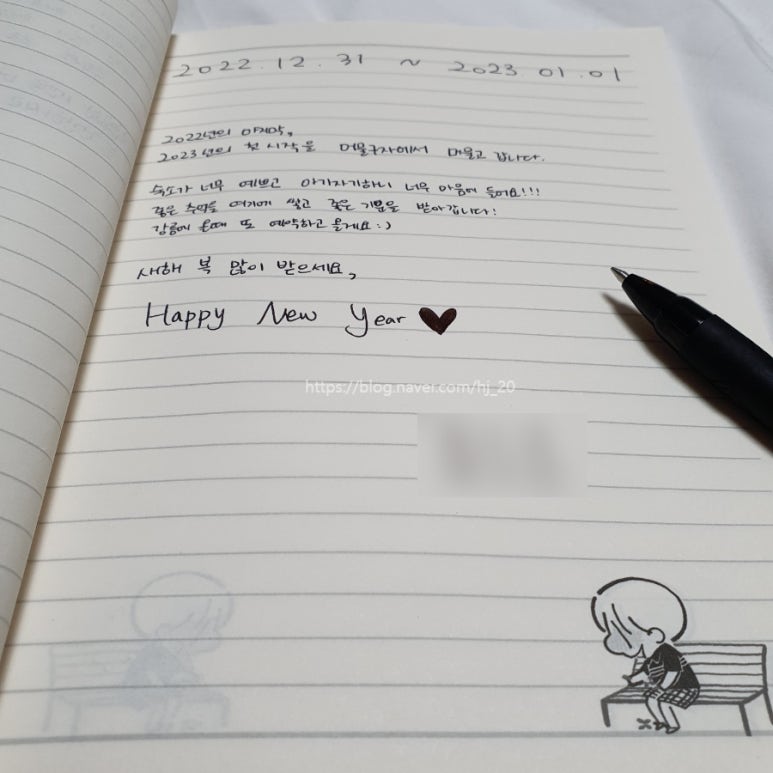 2022.12.31 ~ 2023.01.01
2022년의 마지막,
2023년의 첫 시작을 머물구자에서 머물고 갑니다.
숙소가 너무 예쁘고 아기자기하니 너무 마음에 들어요!!!
좋은 추억을 여기에 쌓고 좋은 기분을 받아갑니다!
강릉에 올때 또 예약하고 올게요:)
새해 복 많이 받으세요,
Happy New Year ♥
https://blog.naver.com/hj_20